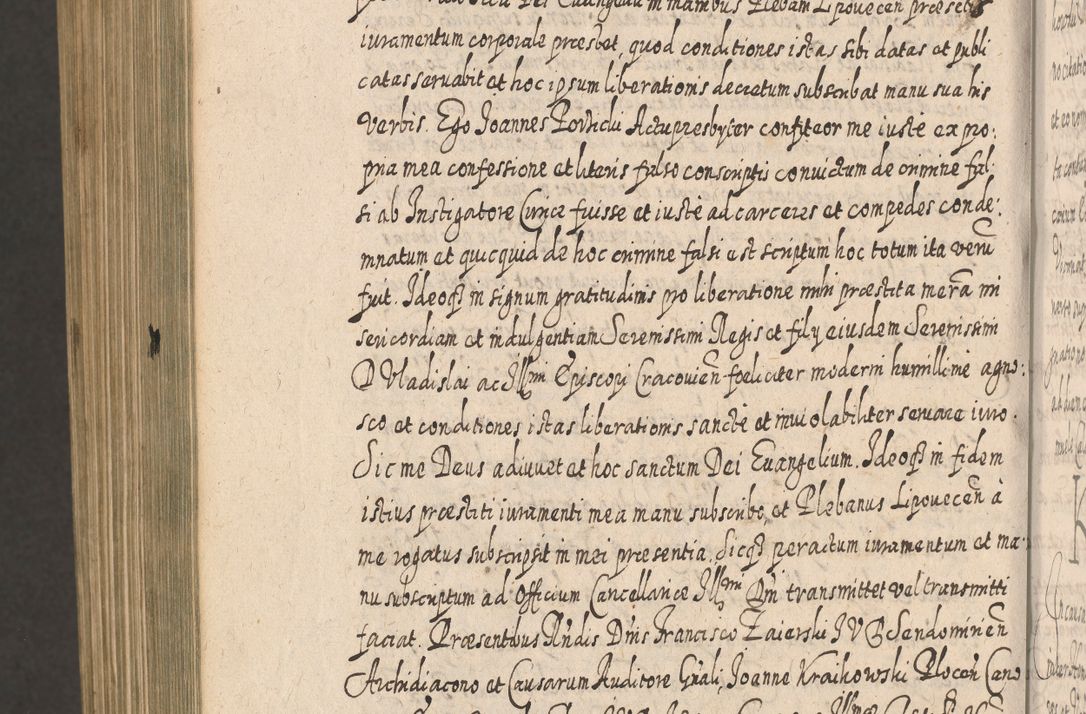 Dei Evangelium in manibus Plebani Lipovecen præsetis
iuramentum corporale præstet, quod conditiones istas sibi datas et publi
catas servabit et hoc ipsum liberationis decretum subscribat manu sua his
verbis. Ego Joannes Actupresbyter confiteor me iuste ex pro:
pria mea confessione et literis falso conscriptis convictum de crimine fal:
si ab Instigatore Curiæ fuisse et iuste ad carceres et compedes conde:
mnatum et quicquid de hoc crimine falsi est scriptum hoc totum ita verũ
fuit. Ideoq3 in signum gratitudinis pro liberatione mihi præstita merã mi
sericordiam et indulgentiam Serenissimi Regis et filÿ eiusdem Serenissimi
D Vladislai ac Jllmi Episcopi Cracovieñ fœliciter moderni humillime agno:
sco et conditiones istas liberationis sancte et inviolabiliter servare iuro.
Sic me Deus adiuvet et hoc sanctum Dei Evangelium. Ideoq3 in fidem
istius præstiti iuramenti mea manu subscribo, et Plebanus Lipoveceñ à
me rogatus subscripsit in mei præsentia. Sicq3 peractum iuramentum et ma:
nu subscriptum ad Officium Cancellariæ Jllmi Dñi transmittet vel transmitti
faciat. Præsentibus Rñdis Dñis Francisco Zaierski JVD Sendomirieñ
Archidiacono et Causarum Auditore Gñali, Joanne Kraikowski Ploceñ Cano